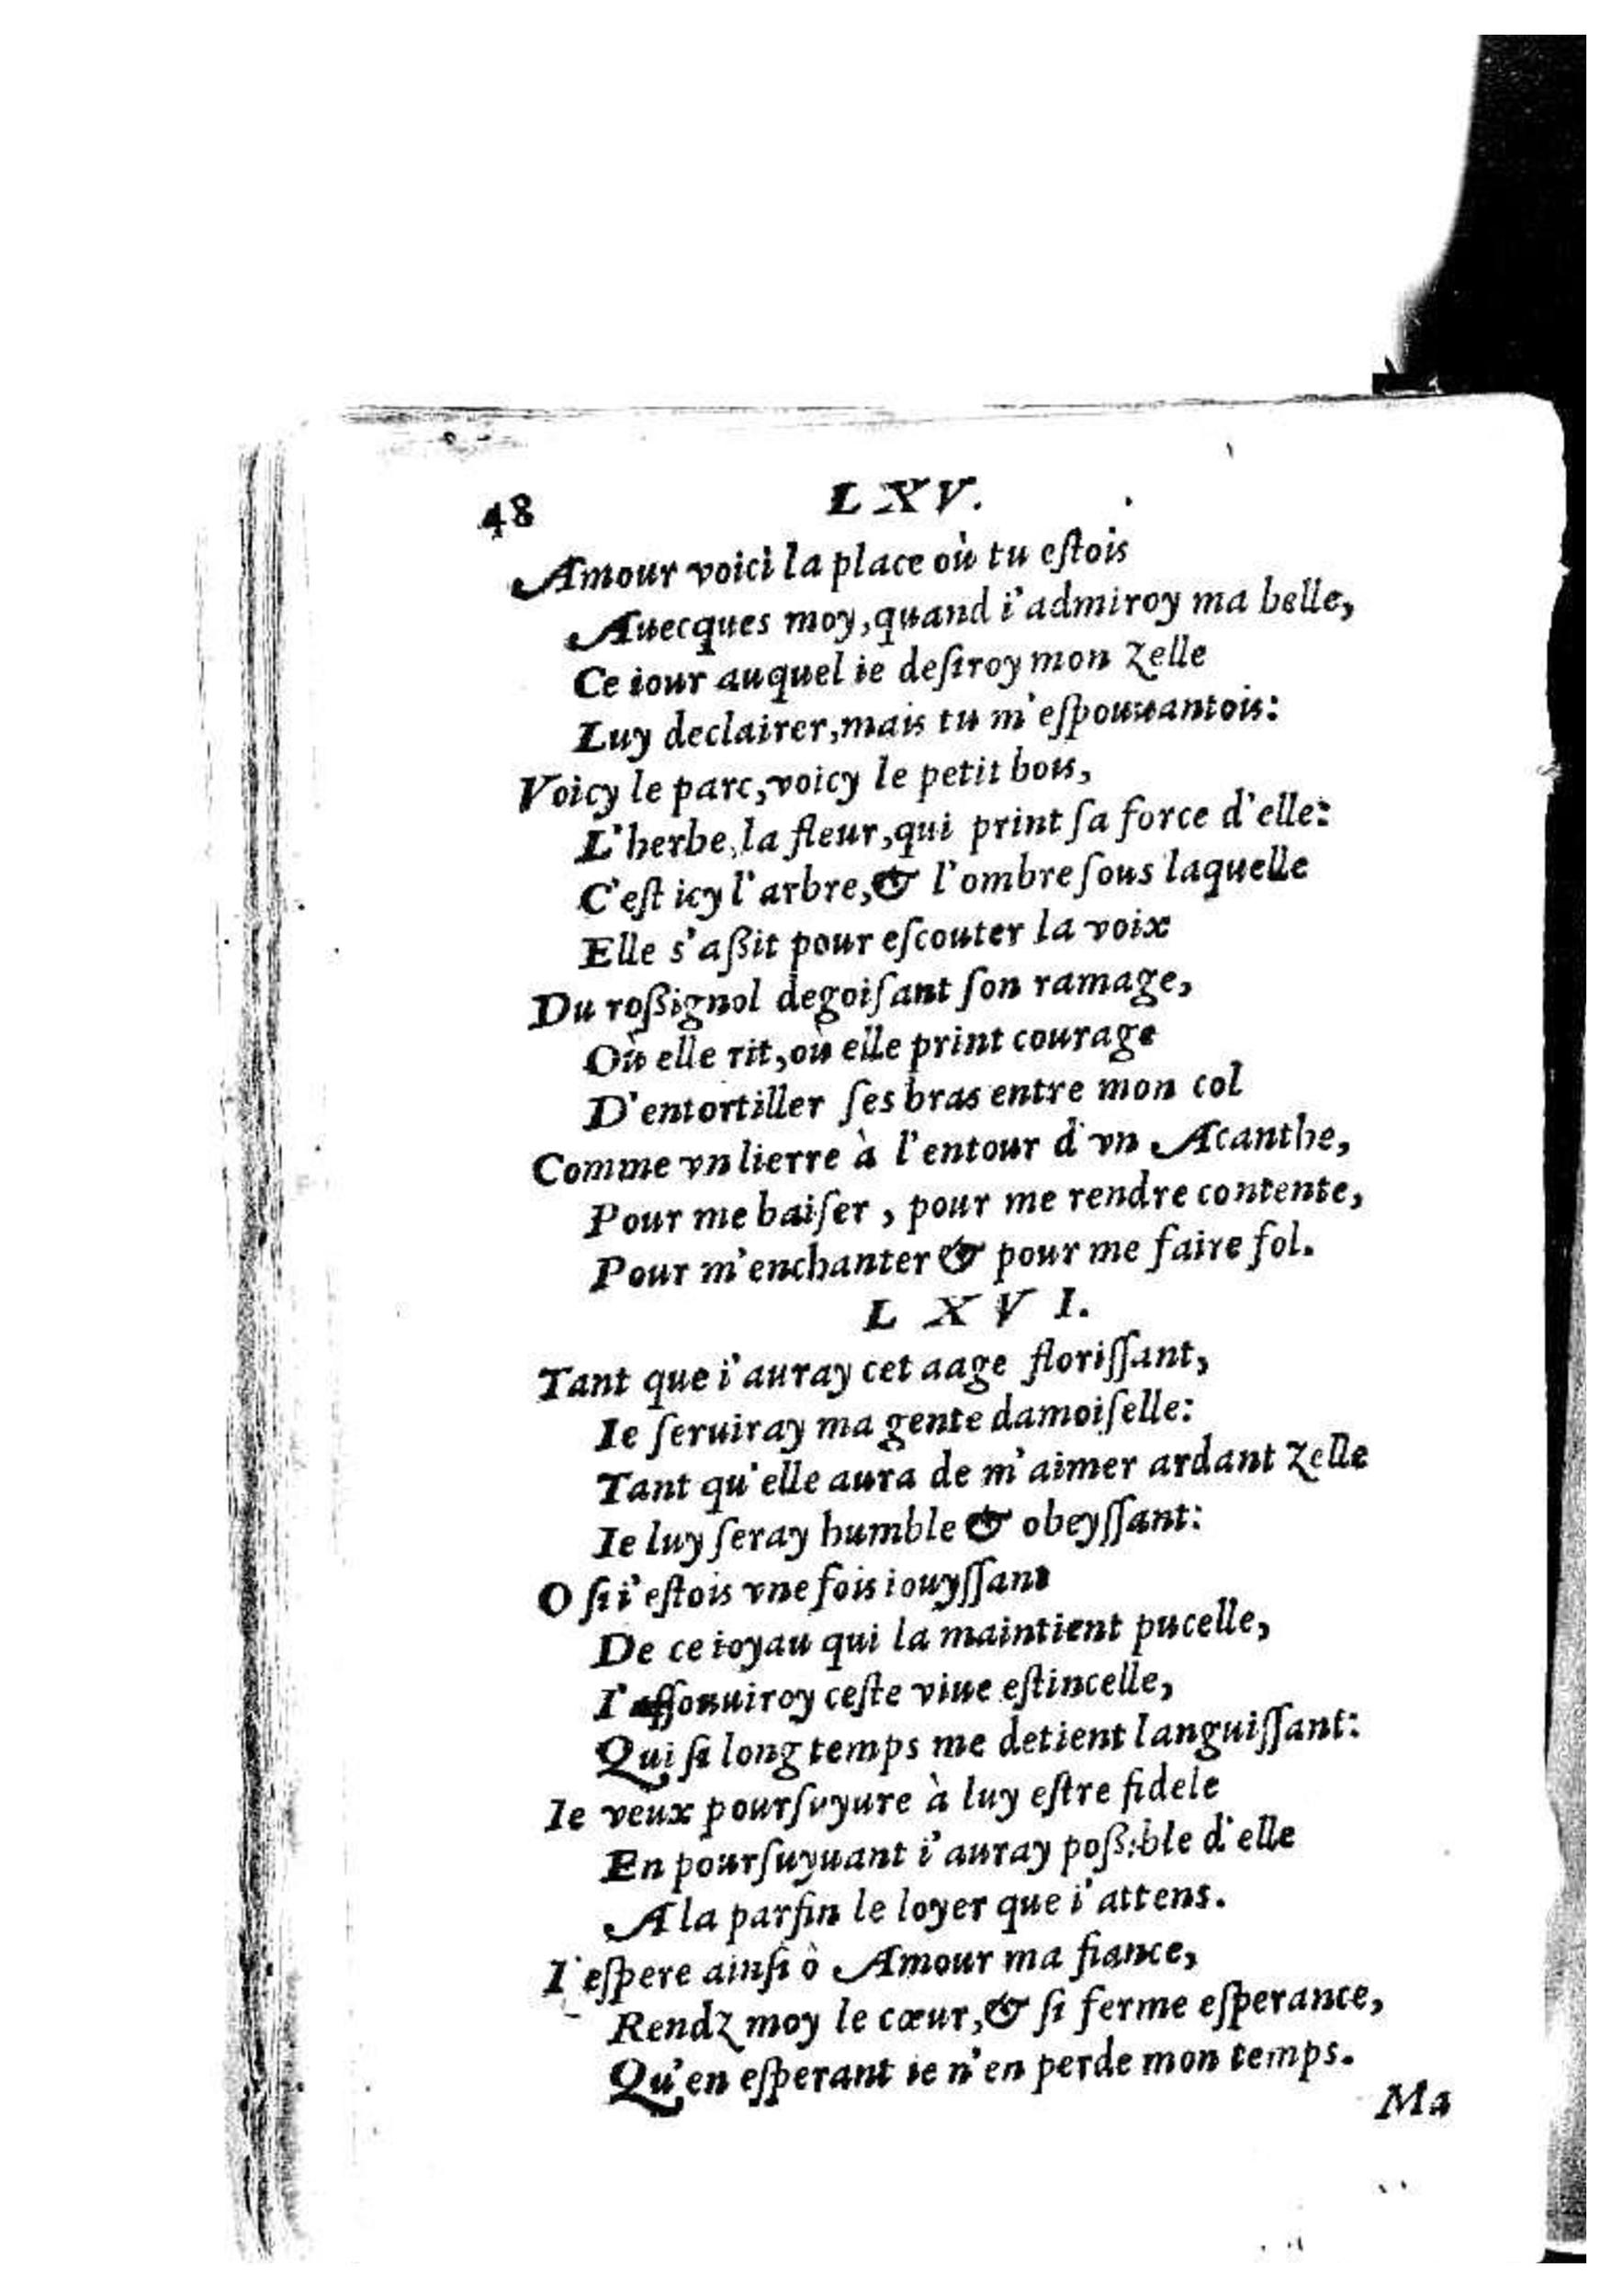 48 LXV.
Amour voici la place où tu eſtois
Auecques moy, quand i'admiroy ma belle,
Ce iour auquel ie deſiroy mon zelle
Luy declairer, mais tu m'eſpouuantois:
Voicy le parc, voicy le petit bois,
L'herbe, la fleur, qui print ſa force d'elle:
C'eſt icy l'arbre, & l'ombre ſous laquelle
Elle s'aßit pour eſcouter la voix
Du roßignol degoiſant ſon ramage,
Où elle rit, où elle print courage
D'entortiller ſes bras entre mon col
Comme vn lierre à l'entour d'vn Acanthe,
Pour me baiſer, pour me rendre contente,
Pour m'enchanter & pour me faire fol.
LXVI.
Tant que i'auray cet aage floriſſant,
Ie ſeruiray ma gente damoiſelle:
Tant qu'elle aura de m'aimer ardant zelle
Ie luy ſeray humble & obeyſſant:
O ſi i'eſtois vne fois iouyſſant
De ce ioyau qui la maintient pucelle,
I'aſſouuiroy ceſte viue eſtincelle,
Qui ſi long temps me detient languiſſant:
Ie veux pourſuyure à luy eſtre fidele
En pourſuyuant i'auray poßible d'elle
A la parfin le loyer que i'attens.
I'eſpere ainſi ô Amour ma fiance,
Rendz moy le cœur, & ſi ferme eſperance,
Qu'en eſperant ie n'en perde mon temps.
Ma